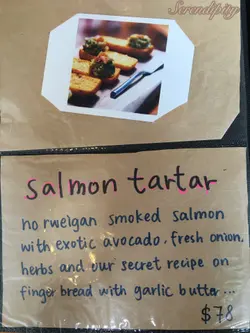 Serendipity
salmon tartar
norwelgan smoked salmon
with exotic avocado, fresh onion,
herbs and our secret recipe on
finger bread with garlic butter ...
$78